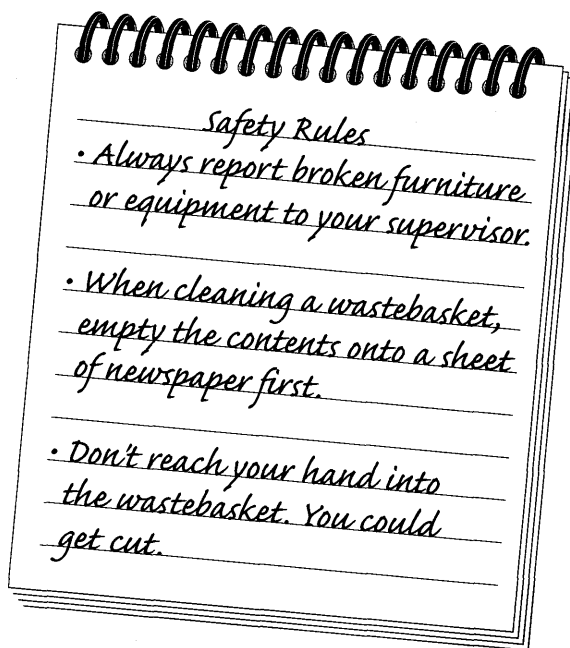 Safety Rules
• Always report broken furniture
or equipment to your supervisor.
• When cleaning a wastebasket,
empty the contents onto a sheet
of newspaper first.
• Don't reach your hand into
the wastebasket. You could
get cut.